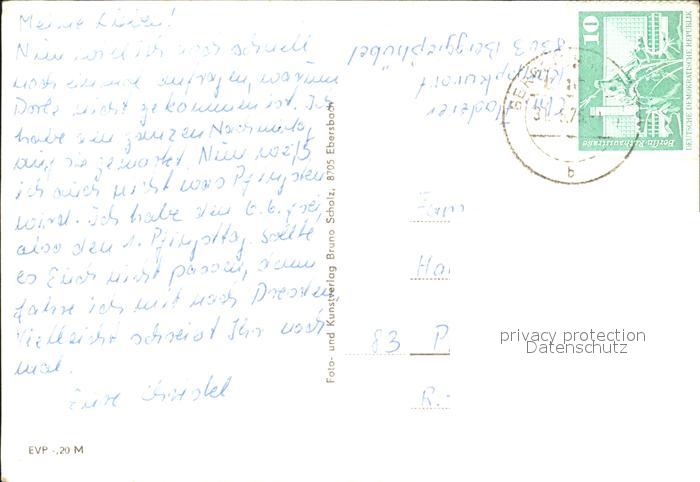 Meine Lieben!
Nun will ich noch schnell
noch einmal anfragen, warum
Doris nicht gekommen ist. Ich
habe den ganzen Nachmittag
auf sie gewartet. Nun weiß
ich auch nicht was Pfingsten
wird. Ich habe den 6.6. frei
also den 1. Pfingsttag. Sollte
es Euch nicht passen, dann
fahre ich mit nach Dresden.
Vielleicht schreibt Ihr noch
mal.
Eure Christel
EVP -,20 M
Foto- und Kunstverlag Bruno Scholz, 8705 Ebersbach
8303 Berggießhübel
Kneippkurort
10
DEUTSCHE DEMOKRATISCHE REPUBLIK
Berlin·Rathausstraße
b
Fam
Ha
83 P
privacy protection
Datenschutz